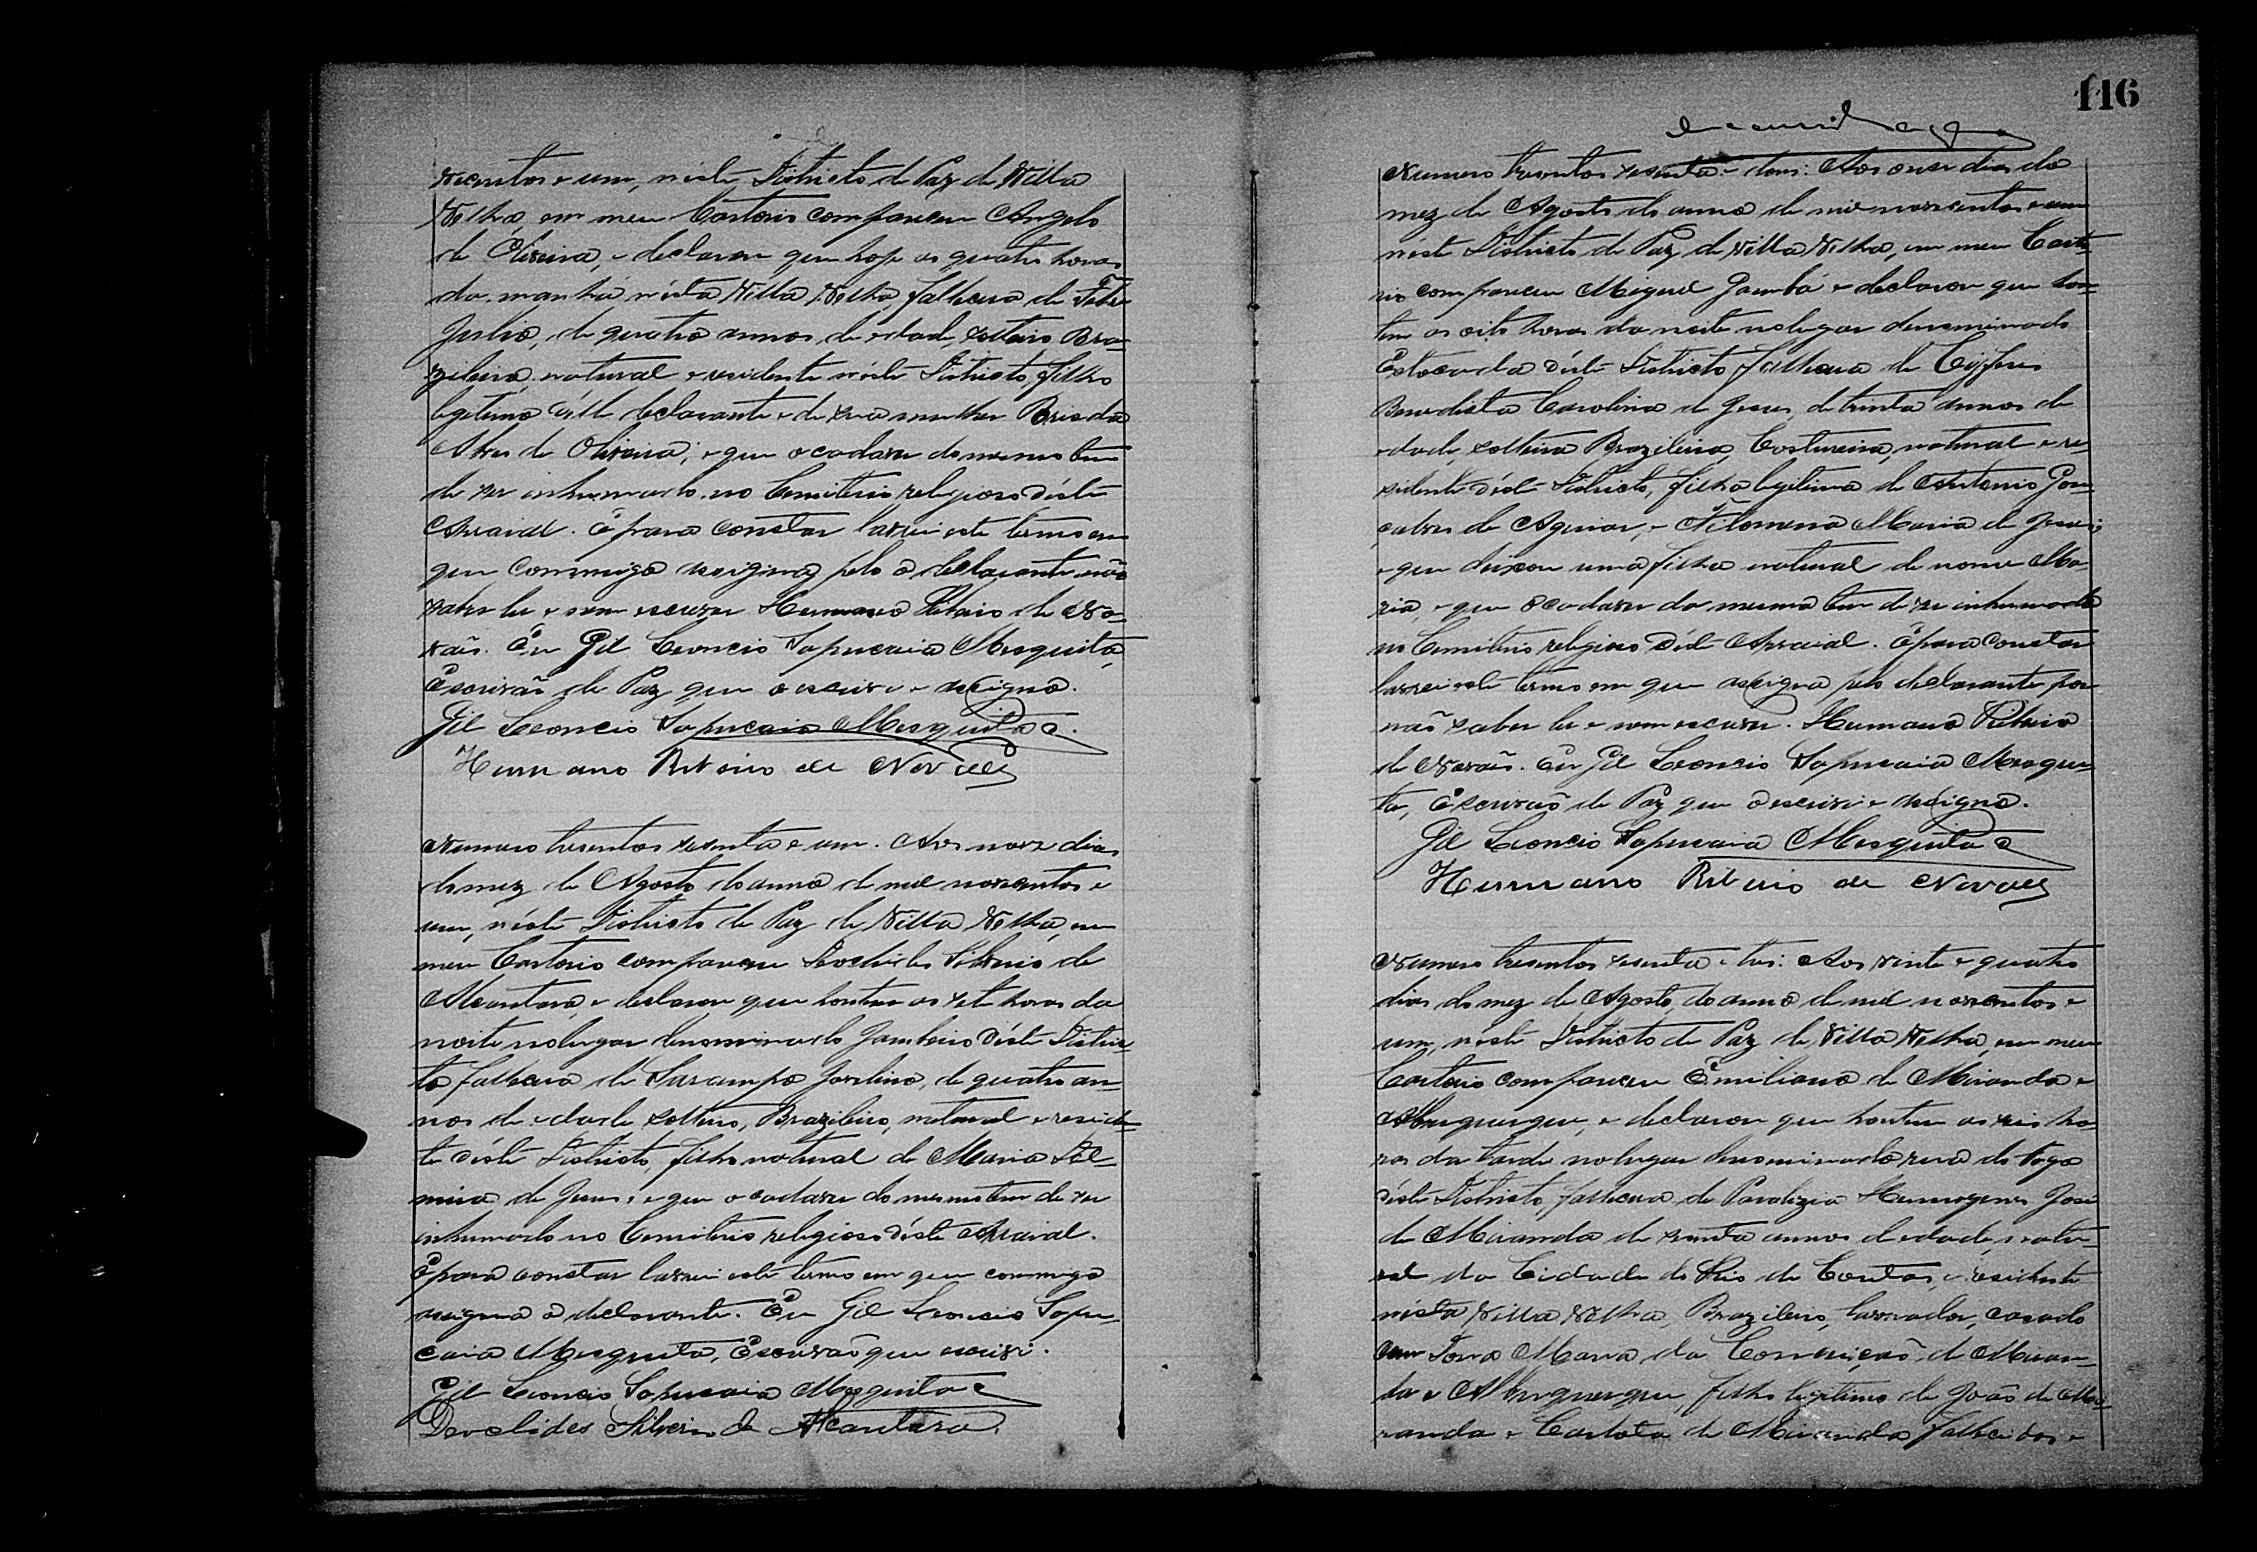 vecentos e um, néste Districto de Paz de Villa
Velha, em meu Cartorio compareceu Angelo
de Oliveira, e declarou que hoje as quatro horas
da manhã nésta Villa Velha, falleceu de Febre
Julio, de quatro annos de edade, solteiro Bra-
zileiro, natural e residente néste Districto, filho
legitimo d'elle declarante e de sua mulher
Alves de Oliveira; e que o cadaver do mesmo tem
de ser inhumado no Cemiterio religioso déste
Arraial. E para constar lavrei este termo em
que commigo assigna pelo o declarante não
saber ler e nem escrever Hermano Ribeiro de No-
vaes. Eu Gil Leoncio Sapucaia Mesquita,
Escrivão de Paz que o escrivi e assigno.
Gil Leoncio Sapucaia Mesquita
Hermano Ribeiro de Novaes
Numero tresentos sesenta e um. Aos nove dias
do mez de Agosto do anno de mil novecentos e
um, néste Districto de Paz de Villa Velha, em
meu Cartorio compareceu Deoclides Silverio de
Alcantara, e declarou que hontem as sete horas da
noite no lugar denominado Gambeiro déste Distric-
to falleceu de Sarampo Jovelino, de quatro an-
nos de edade solteiro, Brazileiro, natural e residen-
te déste Districto, filho natural de Maria Bel-
mira de Jesus; e que o cadaver do mesmo tem de ser
inhumado no Cemiterio religioso déste Arraial.
E para constar lavrei este termo em que commigo
assigna o declarante. Eu Gil Leoncio Sapu-
caia Mesquita, Escrivão que escrivi.
Gil Leoncio Sapucaia Mesquita
Deoclides Silverio de Alcantara.
116
Numero tresentos sesenta e dous: Aos onze dias do
mez de Agosto do anno de mil novecentos e um
néste Districto de Paz de Villa Velha, em meu Carto-
rio compareceu Miguel Gambá e declarou que hon-
tem as oito horas da noite no lugar denominado
Estocada déste Districto falleceu de
Benedicta Carolina de Jesus, de trinta annos de
edade, solteira Brazileira, Costureira, natural e re-
sidente déste Districto, filha legitima de Antonio Gon-
çalves de Aguiar, e Filomena Maria de Jesus;
e que deixou uma filha natural de nome Ma-
ria, e que o cadaver da mesma tem de ser inhumado
no Cemiterio religioso déste Arraial. E para constar
lavrei este termo em que assigna pelo declarante por
não saber ler e nem escrever. Hermano Ribeiro
de Novaes. Eu Gil Leoncio Sapucaia Mesqui-
ta, Escrivão de Paz que o escrivi e assigno.
Gil Leoncio Sapucaia Mesquita
Hermano Ribeiro de Novaes
Numero tresentos sesenta e tres: Aos vinte e quatro
dias do mez de Agosto, do anno de mil novecentos e
um, néste Districto de Paz de Villa Velha, em meu
Cartorio compareceu Emiliano de Miranda e
Albuquerque, e declarou que hontem as seis ho-
ras da tarde no lugar denominado rua do fogo
déste Districto, falleceu de Paralizia Hermogenes José
de Miranda de annos de edade, natu-
ral da Cidade do Rio de Contas, e residente
nésta Villa Velha, Brazileiro, lavrador, casado
com Dona Maria da Conceição de Miran-
da e Albuquerque, filho legitimo de João de Mi-
randa e Carlota de Miranda fallecidos e